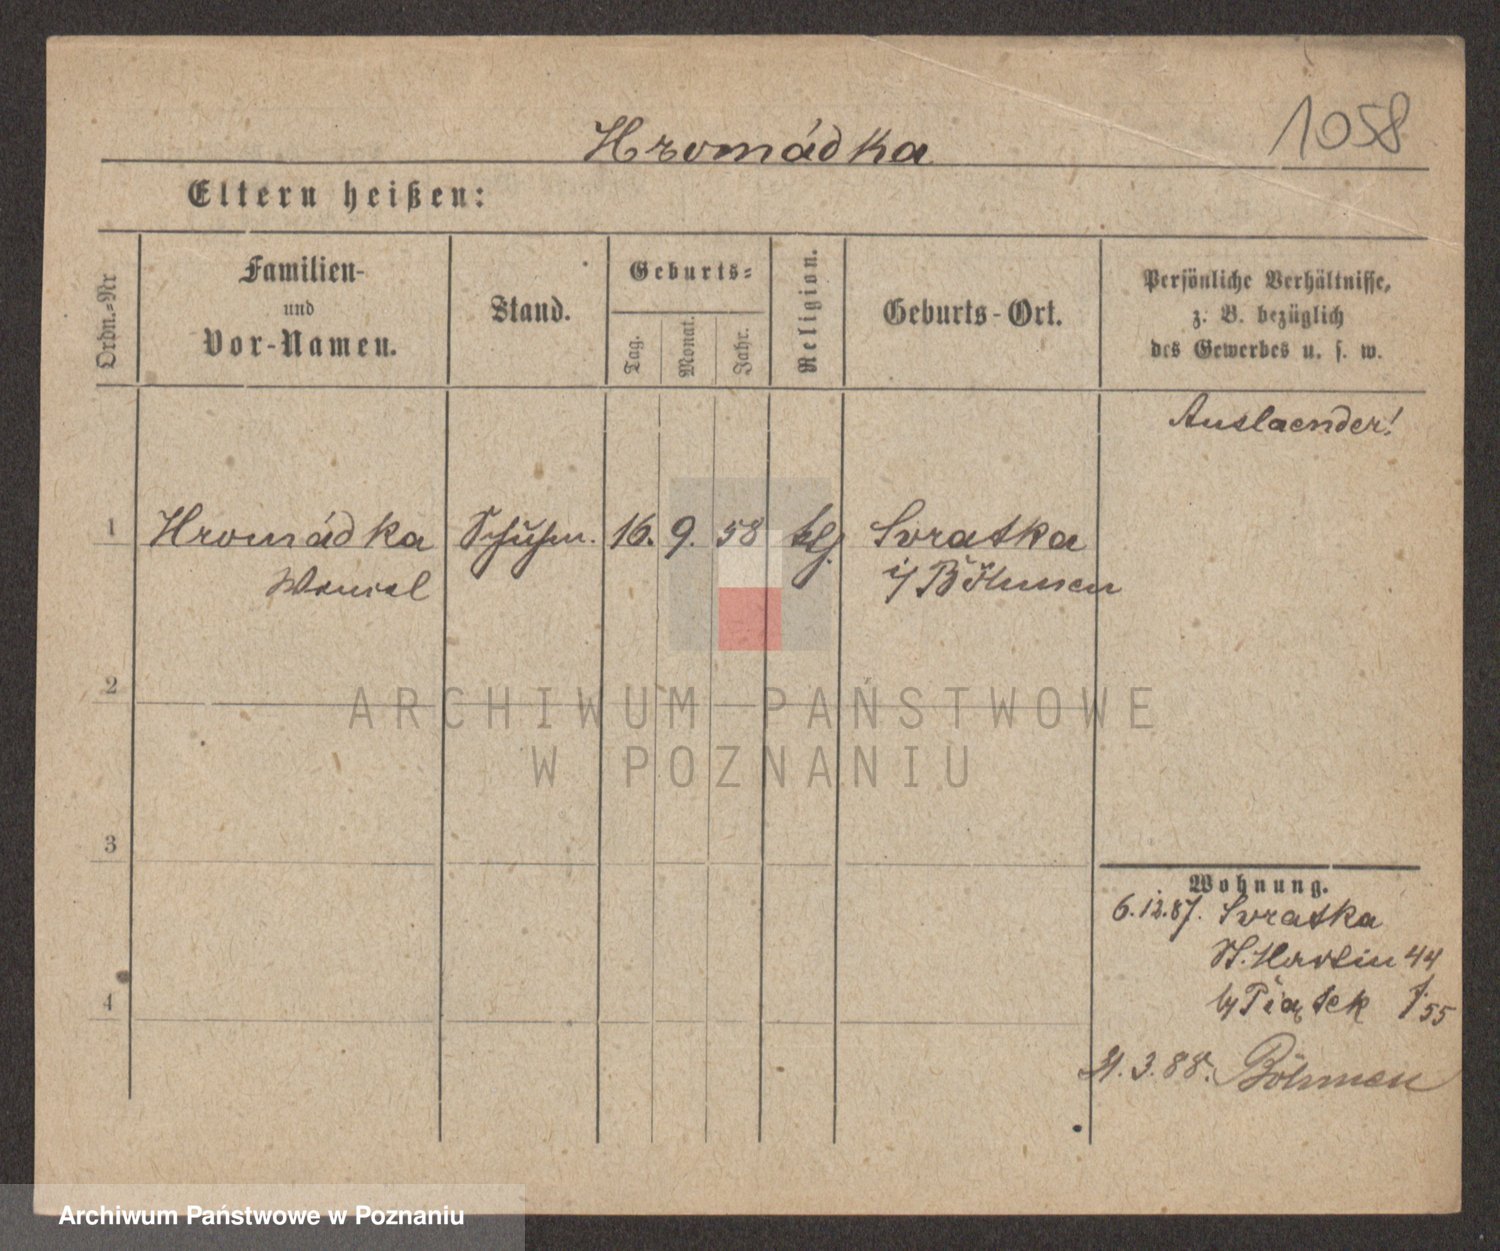 1058
Hromádka
Eltern heißen:
Ordn.-Nr
Familien-
und
Vor-Namen.
Stand.
Geburts-
Tag.
Monat.
Jahr.
Religion.
Geburts-Ort.
Persönliche Verhältnisse,
z. B. bezüglich
des Gewerbes u. s. w.
Auslaender!
1 Hromádka Schuhm. 16. 9. 58 Svratka
Wenzel i/ Böhmen
2
ARCHIWUM PAŃSTWOWE
W POZNANIU
3
Wohnung.
6.12.87. Svratka
St. Martin 44
Piątek 55
4
3.88. Böhmen
Archiwum Państwowe w Poznaniu